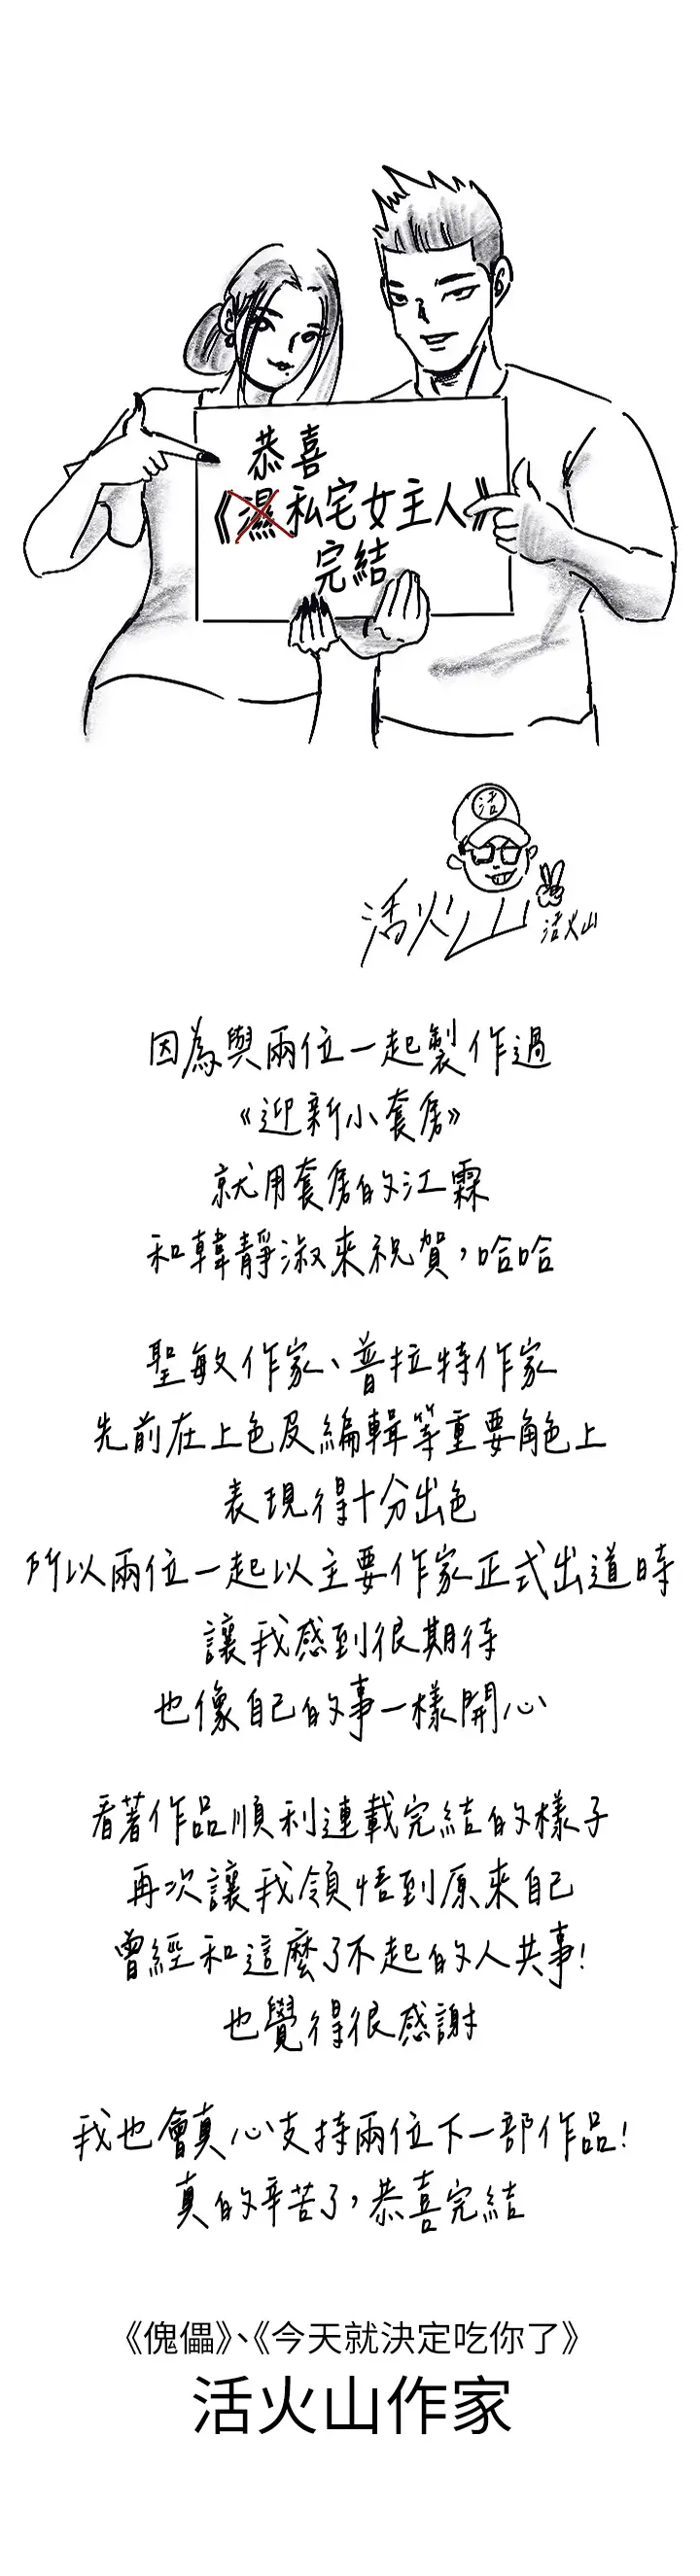 恭喜
《濕私宅女主人》
完結
活
活火山
活火山
因為與兩位一起製作過
《迎新小套房》
就用套房的江霖
和韓靜淑來祝賀，哈哈
聖敏作家、普拉特作家
先前在上色及編輯等重要角色上
表現得十分出色
所以兩位一起以主要作家正式出道時
讓我感到很期待
也像自己的事一樣開心
看著作品順利連載完結的樣子
再次讓我領悟到原來自己
曾經和這麼了不起的人共事!
也覺得很感謝
我也會真心支持兩位下一部作品!
真的辛苦了，恭喜完結
《傀儡》、《今天就決定吃你了》
活火山作家